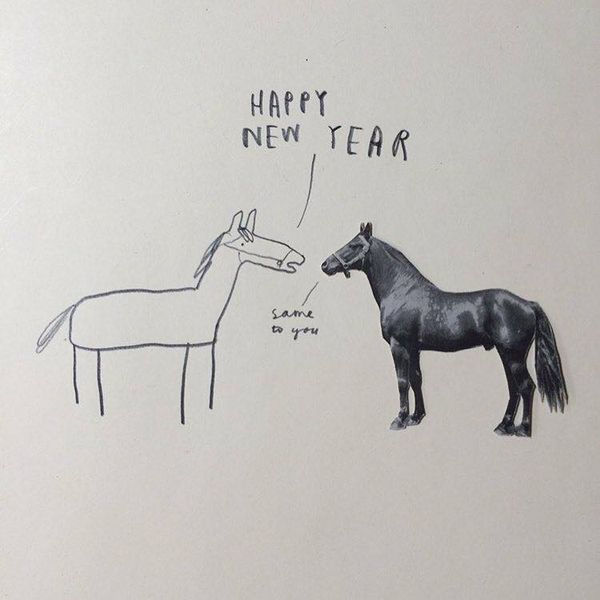 HAPPY
NEW YEAR
same
to you